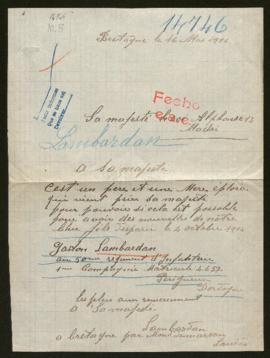 14746
Bretagne le 16 Mai 1916
Fecho
Sa majesté Alphonse 13
Madri
Lambardan
a Sa majesté
C'est un père et une Mère éploré
qui vient prier sa majesté
pour pouvoir si cela est possible
pour avoir des nouvelles de notre
Cher fils disparu le 4 octobre 1914
Gaston Lambardan
au 50me regiment d'Infanterie
1me Compagnie Matricule 4652
Perigueux
Dordogne
a Sa majesté
Lambardan
a bretagne par Mont de marsan
Landes